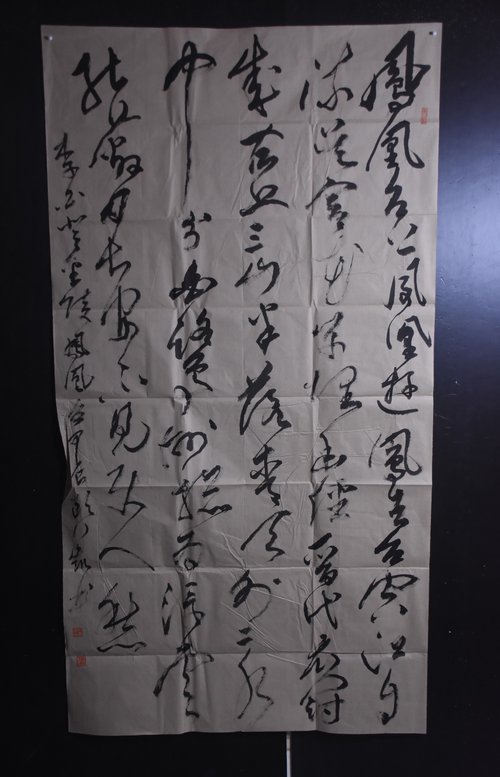 鳳凰台上鳳凰遊鳳去台空江自
流吳宮花草埋幽徑晉代衣冠
成古丘三山半落青天外二水
中分白鷺洲總為浮雲
能蔽日長安不見使人愁
李白登金陵鳳凰台甲辰